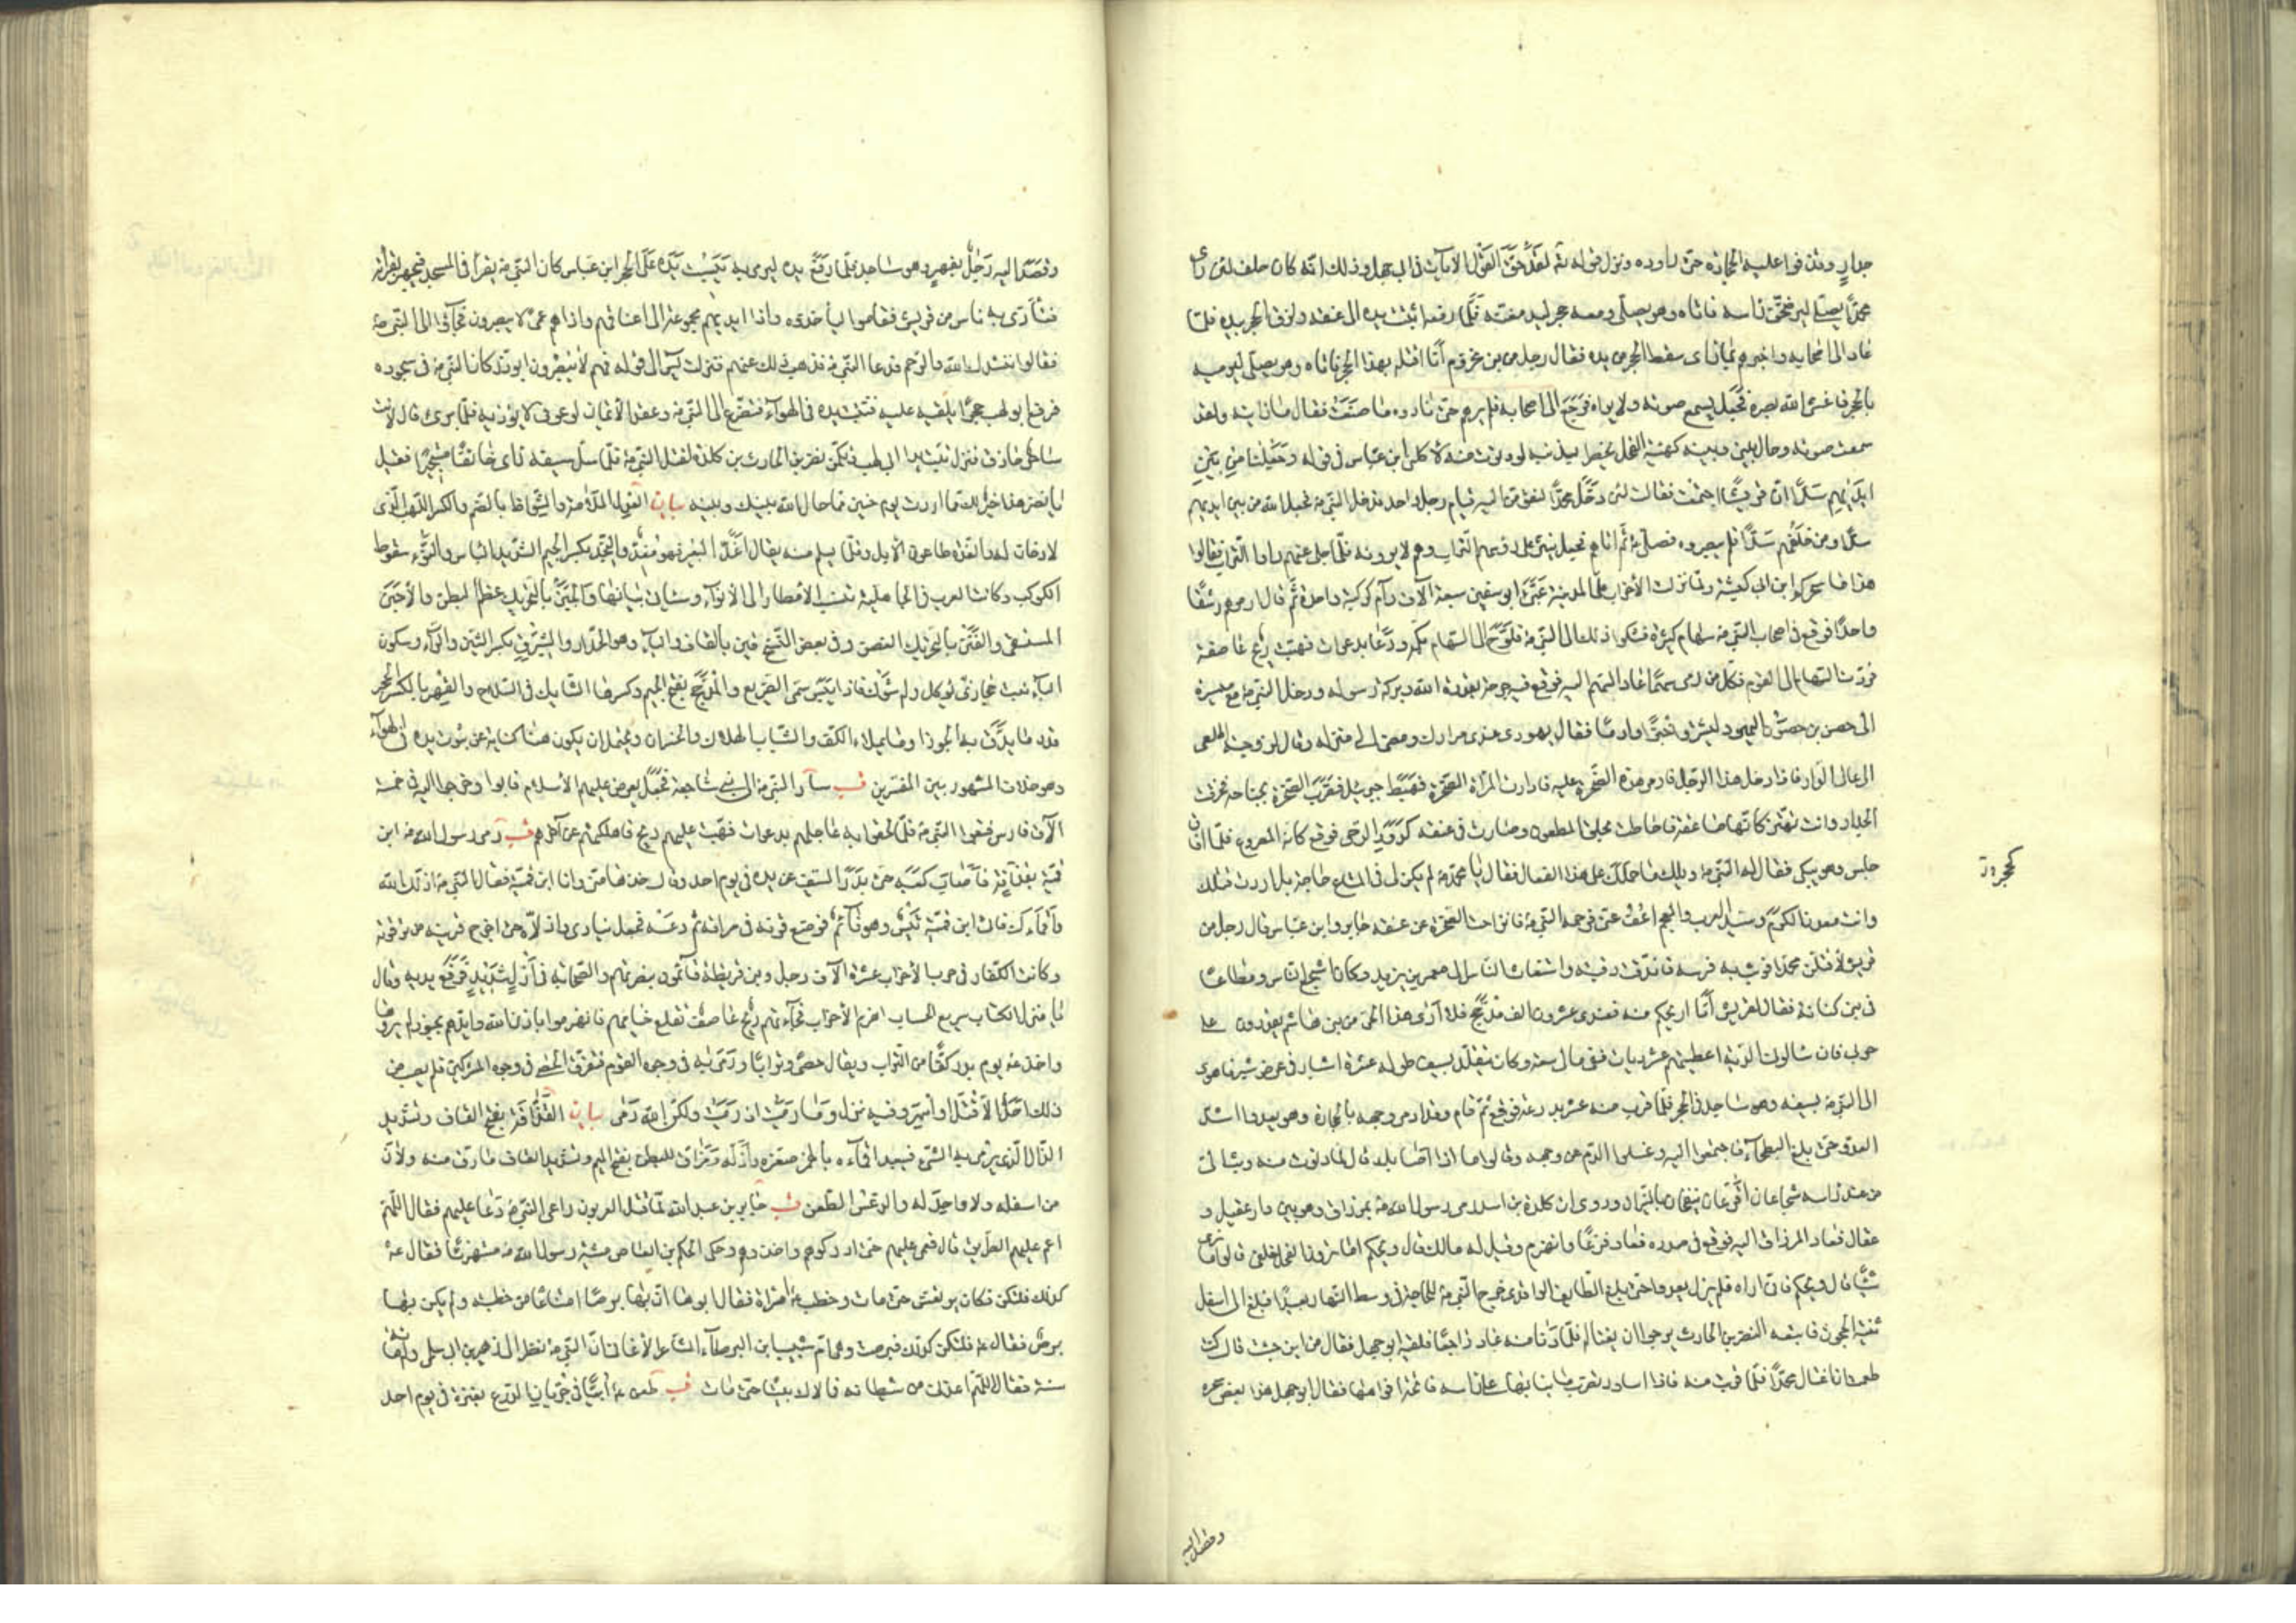 جدارٍ وقذفوا عليه الحجارة حتى داوده ونزل قوله تع لقد حق القول الآيات في ابي جهل وذلك انه كان حلف لئن رأى
محمدا يصلي ليرضخن رأسه فاتاه وهو يصلي ومعه حجر ليدمغه فلما رفعه اثبت يده الى عنقه ولزق الحجر بيده فلما
عاد الى اصحابه واخبرهم بما رأى سقط الحجر من يده فقال رجل من بني مخزوم انا اقتله بهذا الحجر فاتاه وهو يصلي ليرميه
بالحجر فاغشى الله بصره فجعل يسمع صوته ولا يراه فرجع الى اصحابه فلم يرهم حتى نادوه ما صنعت فقال ما رايته ولقد
سمعت صوته وحال بيني وبينه كهيئة الفحل يخطر بذنبه لو دنوت منه لاكلني ابن عباس في قوله وجعلنا من بين
ايديهم سدا ان قريشا اجتمعت فقالت لئن دخل محمد لنقومن اليه قيام رجل واحد فدخل النبي ص فجعل الله من بين ايديهم
سدا ومن خلفهم سدا فلم يبصروه فصلى ص ثم اتاهم فجعل ينثر على رؤسهم التراب وهم لا يرونه فلما جلى عنهم راوا التراب فقالوا
هذا ما سحركم ابن ابي كبشة ولما نزلت الاحزاب على المدينة عبى ابو سفين سبعة الاف رام كوكبة واحدة ثم قال ارموهم رشقا
واحدا فوقع في اصحاب النبي ص سهام كثيرة فشكوا ذلك الى النبي ص فلوح الى السهام بكمه ودعا بدعوات فهبت ريح عاصفة
فردت السهام الى القوم فكل من رمى سهما عاد السهم اليه فوقع فيه جرحه بقدرة الله وبركة رسوله ودخل النبي ص مع ميسرة
الى حصن من حصون اليهود ليشتروا خبزا وادما فقال يهودي عندي مرادك ومضى الى منزله وقال لزوجته اطلعي
الى عالي الدار فاذا دخل هذا الرجل فارمي هذه الصخرة عليه فادارت المرأة الصخرة فهبط جبرئيل فضرب الصخرة بجناحه فخرقت
الجدار وانت تهتز كانها صاعقة فاحاطت بحلق الملعون وصارت في عنقه كدور الرحى فوقع كانه المصروع فلما افاق
جلس وهو يبكي فقال له النبي ص ويلك ما حملك على هذا الفعال فقال يا محمد لم يكن لي في المتاع حاجة بل اردت قتلك
وانت معدن الكرم وسيد العرب والعجم اعف عني فرحمه النبي ص فانزاحت الصخرة عن عنقه جابر وابن عباس قال رجل من
قريش لاقتلن محمدا فوثب به فرسه فاندقت رقبته واستغاث الناس الى معمر بن يزيد وكان اشجع الناس ومطاعا
في بني كنانة فقال لقريش انا اريحكم منه فعندي عشرون الف مدجج فلا ارى هذا الحي من بني هاشم يقدرون على
حربي فان سالوني الدية اعطيتهم عشر ديات ففي مالي سعة وكان يتقلد بسيف طوله عشرة اشبار في عرض شبر فاهوى
الى النبي ص بسيفه وهو ساجد في الحجر فلما قرب منه عثر بدرعه فوقع ثم قام وقد ادمى وجهه بالحجارة وهو يعدو اشد
العدو حتى بلغ البطحاء فاجتمعوا اليه وغسلوا الدم عن وجهه وقالوا ماذا اصابك قال لما دنوت منه وثب الي
من عند راسه شجاعان اقرعان ينفخان بالنيران وروي ان كلدة بن اسد رمى رسول الله ص بمزراق وهو بين دار عقيل و
عقال فعاد المزراق اليه فوقع في صدره فعاد فزعا وانهزم وقيل له مالك قال ويحكم اما ترون الفحل خلفي قالوا ما نرى
شيئا قال ويحكم فاني اراه فلم يزل يعدو حتى بلغ الطايف الواقدي خرج النبي ص للحاجة في وسط النهار بعيدا فبلغ الى اسفل
ثنية الحجون فاتبعه النضر بن الحارث يرجوا ان يغتاله فلما دنا منه عاد راجعا فلقيه ابو جهل فقال من اين جئت قال كنت
طمعت ان اغتال محمدا فلما قربت منه فاذا اساود تضرب بانيابها على راسه فاتحة افواهها فقال ابو جهل هذا بعض سحره
وقصد اليه
وقصد اليه رجل بفهر وهو ساجد فلما رفع يده ليرمي به يبست يده على الحجر ابن عباس كان النبي ص يقرأ في المسجد فيجهر بقراته
فتأذى به ناس من قريش فقاموا ليأخذوه واذا ايديهم مجموعة الى اعناقهم واذا هم عمي لا يبصرون فجاؤا الى النبي ص
فقالوا ننشدك الله والرحم فدعا النبي ص فذهب ذلك عنهم فنزلت يس الى قوله فهم لا يبصرون ابو ذر كان النبي ص في سجوده
فرفع ابو لهب حجرا يلقيه عليه فثبتت يده في الهواء فتضرع الى النبي ص وعقد الايمان لو عوفي لا يؤذيه فلما برئ قال لانت
ساحر حاذق فنزل تبت يدا ابي لهب فكمن نضر بن الحارث بن كلدة لقتل النبي ص فلما سل سيفه رأى خائفا مستجيرا فقيل
يا نضر هذا خير لك مما اردت يوم حنين مما حال الله بينك وبينه بيان
لا دخان له والغدة طاعون الابل وقلما يسلم منه يقال اغد البعير فهو مغد والنجد بكسر الجيم الشديد الباس والنوء سقوط
الكوكب وكانت العرب في الجاهلية تنسب الامطار الى الانواء وسيأتي بيانها والحبن بالتحريك عظم البطن والاحبن
المستسقي والفنن بالتحريك الغصن وفي بعض النسخ قين بالقاف والياء وهو الحداد والشبرق بكسر الشين والراء وسكون
الباء نبت حجازي يؤكل وله شوك فاذا يبس سمي الضريع والمدجج بفتح الجيم وكسرها الشايك في السلاح والفهر بالكسر الحجر
قدر ما يدق به الجوز او ما يملاء الكف والتباب الهلاك والخسران ويحتمل ان يكون هنا كناية عن ثبوت يده في الهواء
وهو خلاف المشهور بين المفسرين قب سار النبي ص الى بني شاجعة فجعل يعرض عليهم الاسلام فابوا وخرجوا اليه في خمسة
الاف فارس فتبعوا النبي ص فلما لحقوا به عاجلهم بدعوات فهبت عليهم ريح فاهلكتهم عن آخرهم قب رمى رسول الله ص ابن
قمية بقذافة فاصاب كعبه حتى بدر السيف عن يده في يوم احد وقال خذها مني وانا ابن قمية فقال النبي ص اذلك الله
واقماك فاتى ابن قمية تيس وهو نائم فوضع قرنه في مراقه ثم دعسه فجعل ينادي واذلاه حتى اخرج قرنيه من ترقوته
وكانت الكفار في حرب الاحزاب عشرة الاف رجل وبنو قريظة قائمون بنصرتهم والصحابة في ازل شديد فرفع يديه وقال
يا منزل الكتاب سريع الحساب اهزم الاحزاب فجاءتهم ريح عاصف تقلع خيامهم فانهزموا باذن الله وايدهم بجنود لم يروها
واخذ ص يوم بدر كفا من التراب ويقال حصى وترابا ورمى به في وجوه القوم فتفرق الحصى في وجوه المشركين فلم يصب من
ذلك احد الا قتل او اسر وفيه نزل وما رميت اذ رميت ولكن الله رمى بيان القذافة بفتح القاف وتشديد
الذال الذي يرمى به الشئ فيبعد اقماءه بالهمز صغره واذله ومراق البطن بفتح الميم وتشديد القاف ما رق منه ولان
من اسفله ولا واحد له والدعس الطعن قب جابر بن عبد الله لما قتل العرنيون راعي النبي ص دعا عليهم فقال اللهم
اعم عليهم الطريق قال فعمي عليهم حتى ادركوهم واخذوهم وحكى الحكم بن العاص مشية رسول الله ص مستهزئا فقال ص
كذلك فلتكن فكان يرتعش حتى مات وخطب ص امراة فقال ابوها ان بها برصا امتناعا من خطبته ولم يكن بها
برص فقال ص فلتكن كذلك فبرصت وهي ام شبيب ابن البرصاء الشاعر الاغاني ان النبي ص نظر الى زهير بن ابي سلمى وله مائة
سنة فقال اللهم اعذني من شيطانه فما لاك بيتا حتى مات قب طعن ص ابيا في جربان الدرع بعنزة في يوم احد